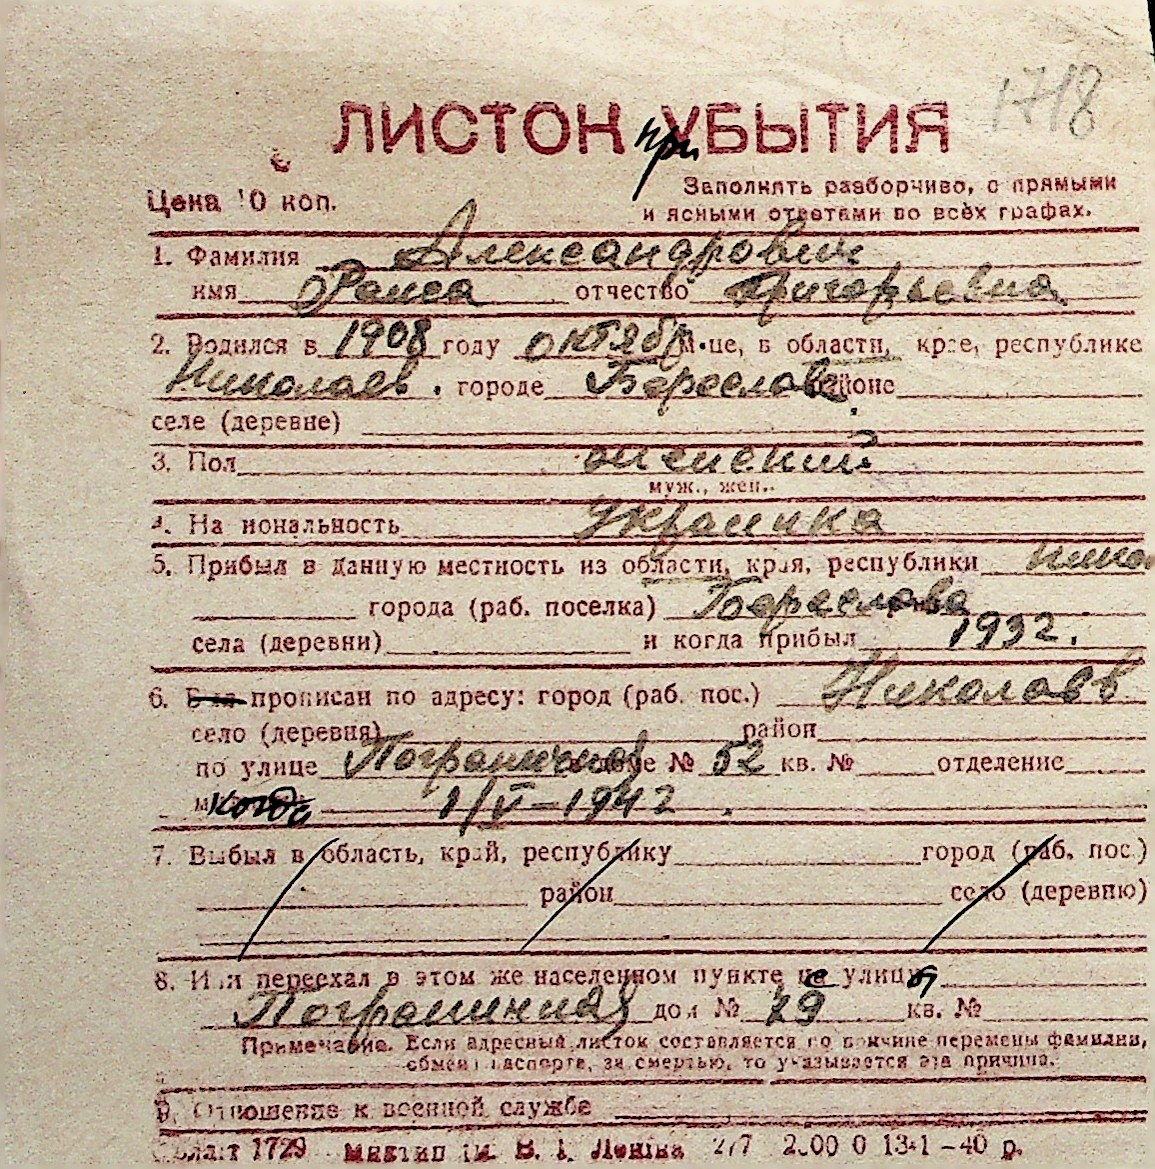 1718
ЛИСТОК при УБЫТИЯ
Цена 10 коп.
Заполнять разборчиво, с прямыми
и ясными ответами во всех графах.
1. Фамилия Александрович
имя Раиса отчество Григорьевна
2. Родился в 1908 году октябр м-це, в области, крае, республике
Николаев. городе Береслове районе
селе (деревне)
3. Пол женский
муж., жен.
4. Национальность Украинка
5. Прибыл в данную местность из области, края, республики Никол
города (раб. поселка) Береслава
села (деревни) и когда прибыл 1932.
6. Был прописан по адресу: город (раб. пос.) Николаев
село (деревня) район
по улице Пограничной № 52 кв. № отделение
когда 1/V-1942.
7. Выбыл в область, край, республику город (раб. пос.)
район село (деревню)
8. Или переехал в этом же населенном пункте на улицу
Пограничная дом № 79 кв. №
Примечание. Если адресный листок составляется по причине перемены фамилии,
обмена паспорта, за смертью, то указывается эта причина.
9. Отношение к военной службе
1729 им. В. І. Леніна 277 2.00 0 13-1-40 р.